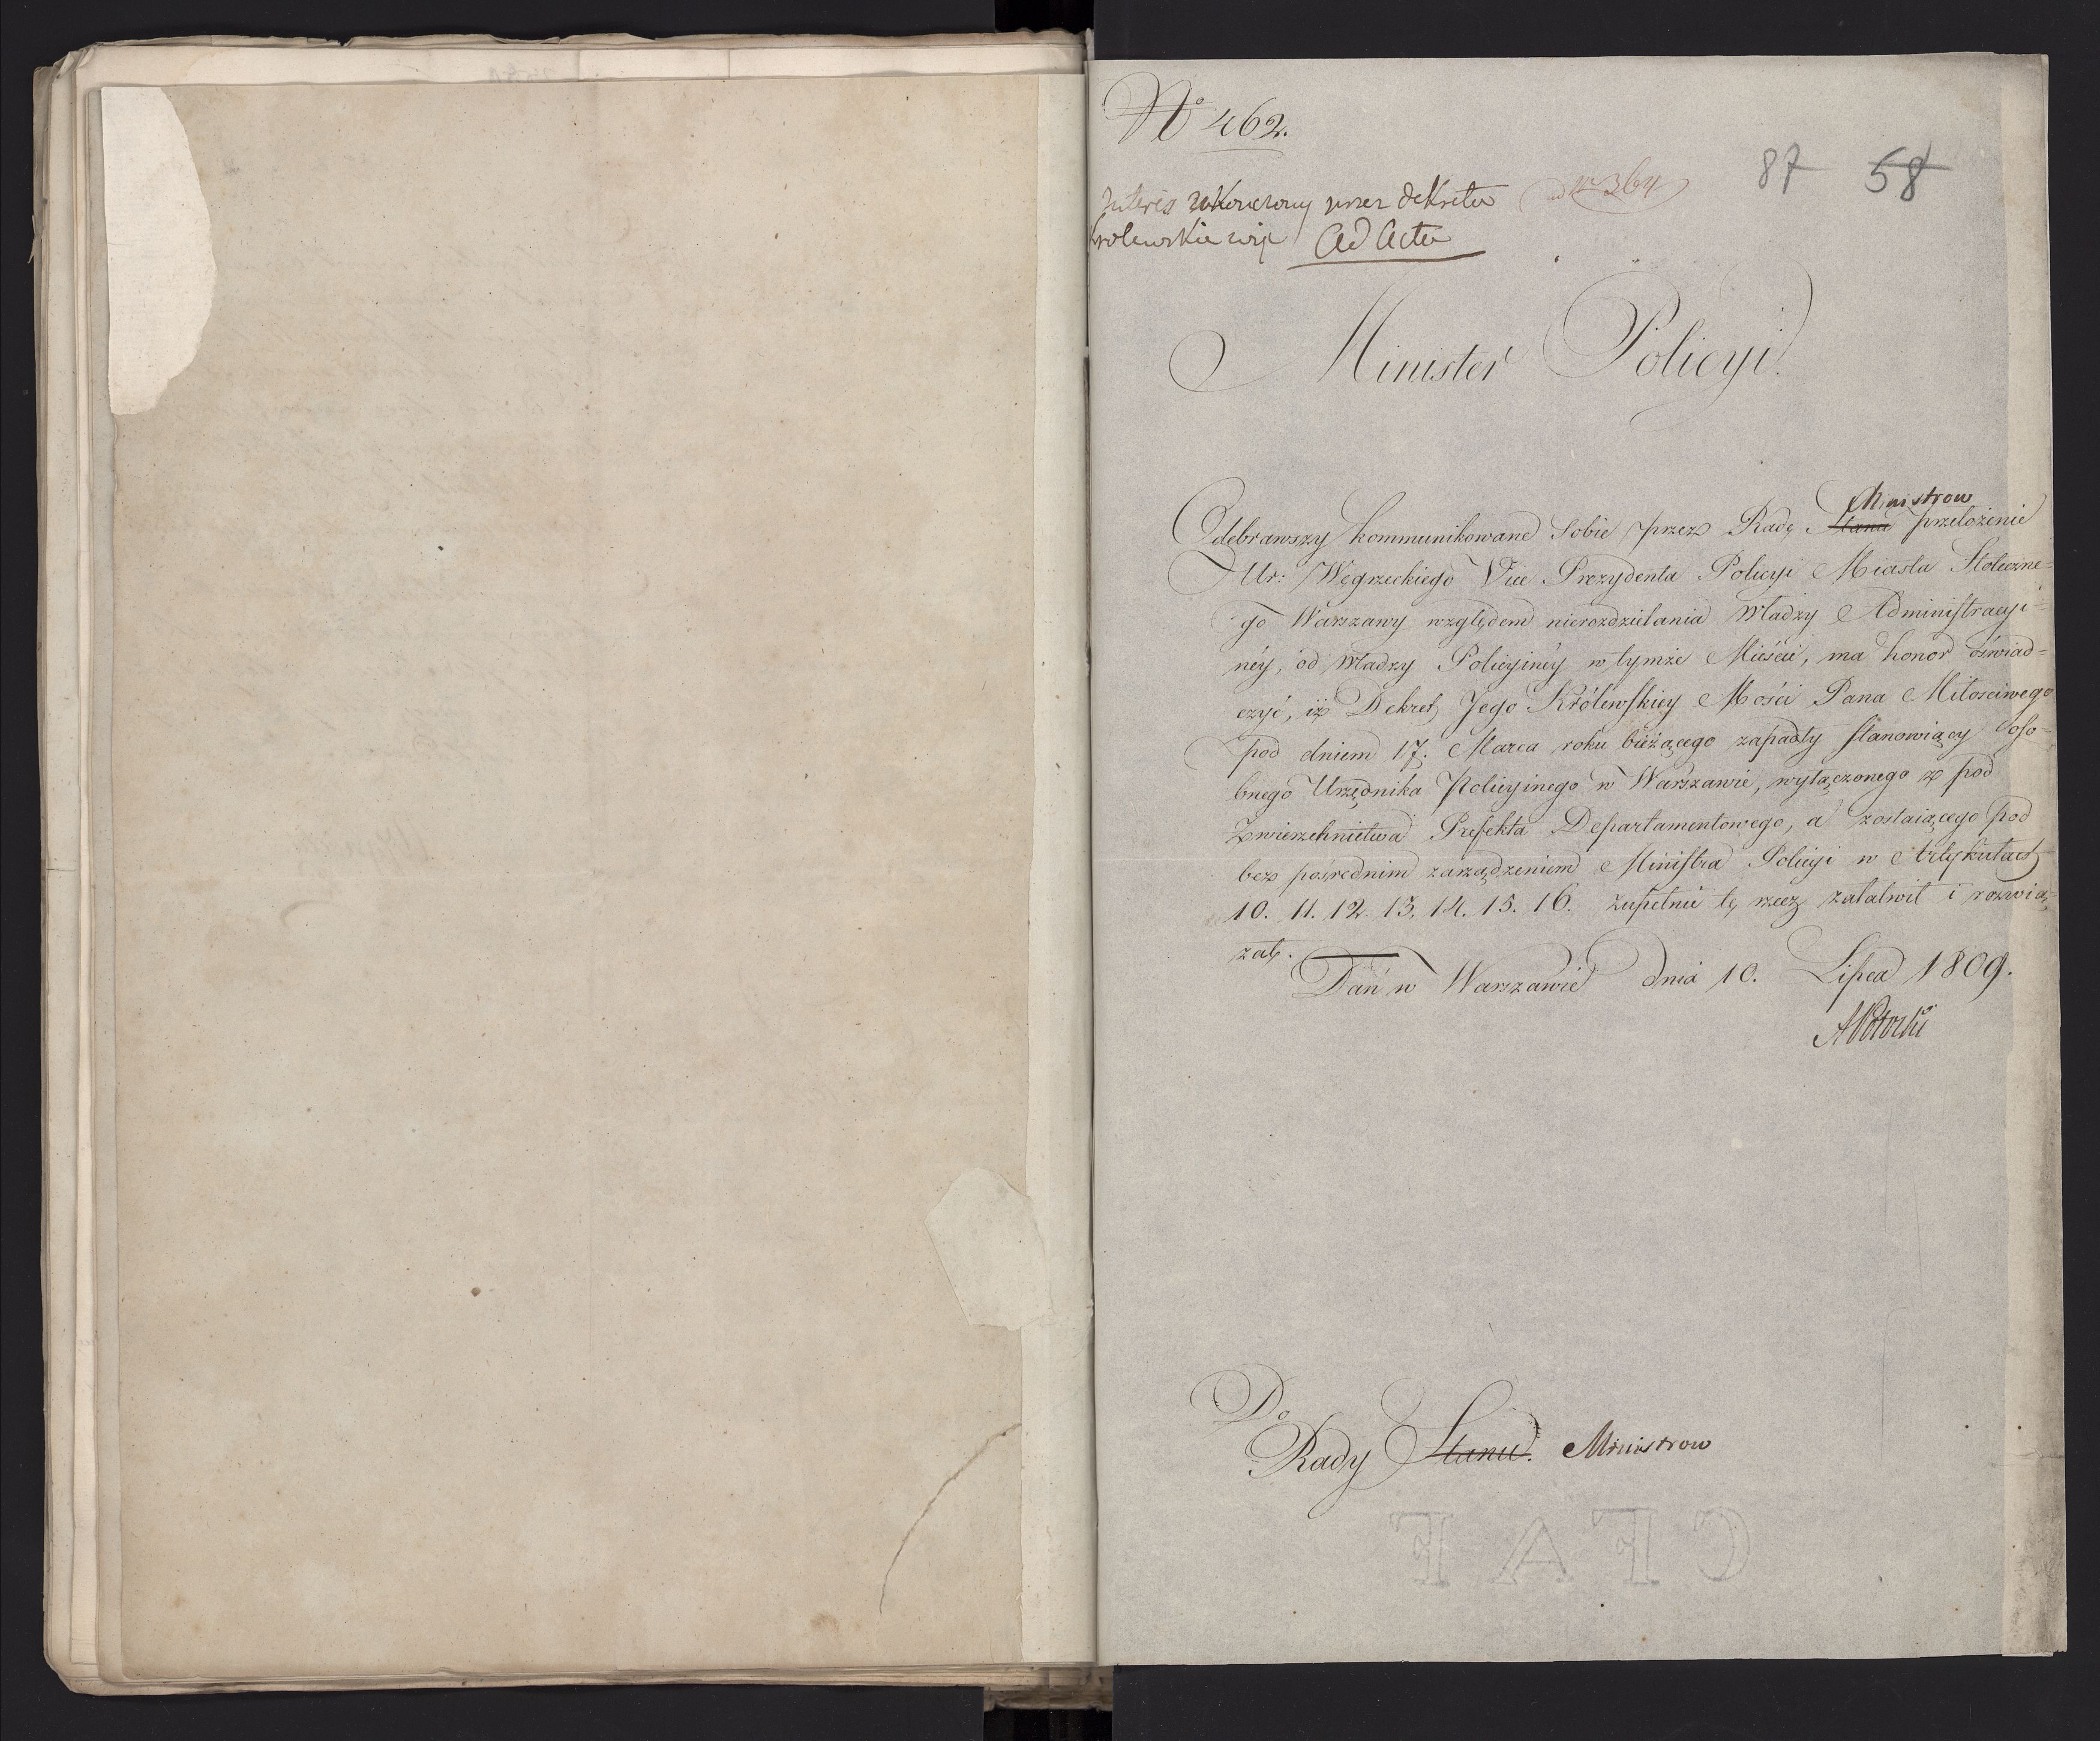 No 462.
87 58
Interes zakończony przez dekreta ad N 364
Krolewskie więc Ad Acta
Minister Policyi.
Ministrow
Odebrawszy kommunikowane Sobie przez Radę Stanu przełożenie
Ur: Węgrzeckiego Vice Prezydenta Policyi Miasta Stołeczne=
go Warszawy względem nierozdzielania Władzy Administracyi=
néy, od Władzy Policyinéy w tymże Mieście, ma honor oświad=
czyć, iż Dekret Jego Królewskiey Mości Pana Miłosciwego
pod dniem 17. Marca roku bieżącego zapadły stanowiący oso=
bnego Urzędnika Policyinego w Warszawie, wyłączonego z pod
Zwierzchnictwa Prefekta Departamentowego, a zostaiącego pod
bez pośrednim zarządzeniem Ministra Policyi w Artykułach
10. 11. 12. 13. 14. 15. 16. zupełnie tę rzecz załatwił i rozwią=
zał.
Dań w Warszawie dnia 10. Lipca 1809.
APotocki
Do
Rady Stanu. Ministrow